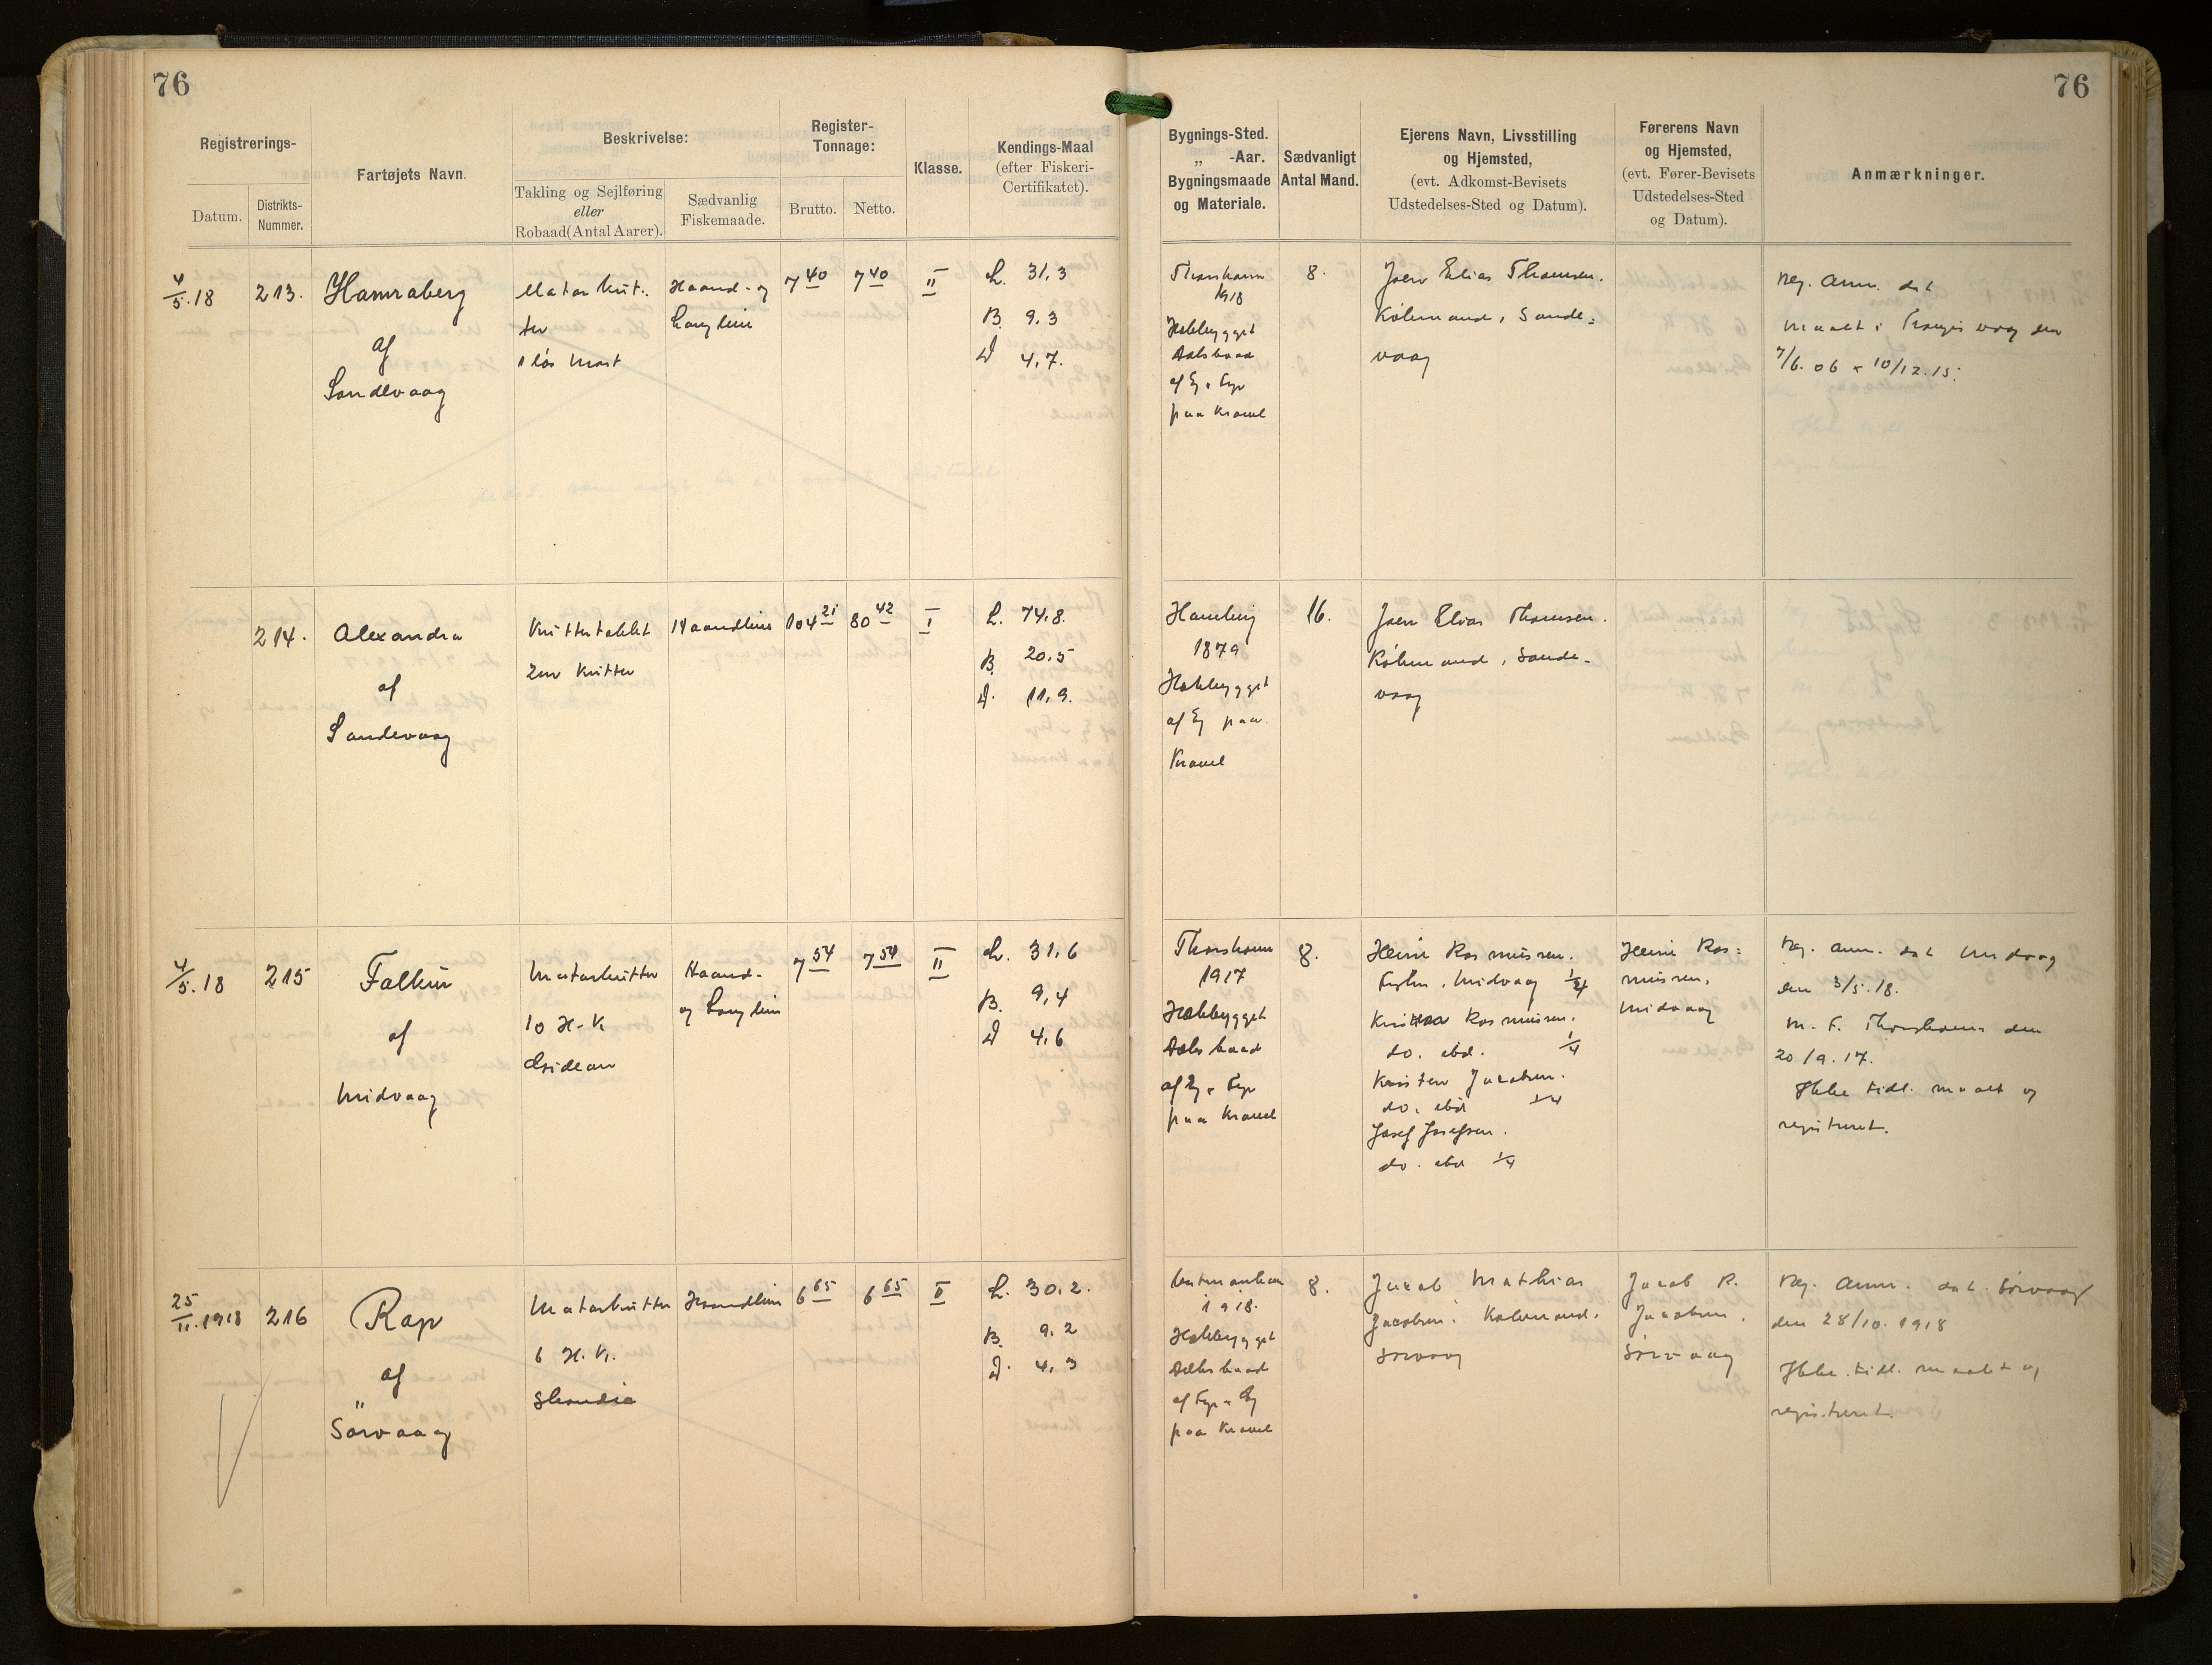 76
76
Registrerings-
Datum.
Distrikts-
Nummer.
Fartøjets Navn.
Beskrivelse:
Takling og Sejlføring
eller
Robaad (Antal Aarer).
Sædvanlig
Fiskemaade.
Register-
Tonnage:
Brutto.
Netto.
Klasse.
Kendings-Maal
(efter Fiskeri-
Certifikatet).
Bygnings-Sted.
„ -Aar.
Bygningsmaade
og Materiale.
Sædvanligt
Antal Mand.
Ejerens Navn, Livsstilling
og Hjemsted,
(evt. Adkomst-Bevisets
Udstedelses-Sted og Datum).
Førerens Navn
og Hjemsted,
(evt. Fører-Bevisets
Udstedelses-Sted
og Datum).
Anmærkninger.
4/5.18
213.
Hamraberg
af
Sandevaag
Motorkut-
ter
1 løs Mast
Haand- og
Langline
7 40
7 40
II
L. 31,3
B. 9,3
D 4,7.
Thorshavn
1918
Hækbygget
Dæksbaad
af Eg & Fyr
paa Kravel
8.
Joen Elias Thomsen.
Købmand, Sande-
vaag
Reg. Anm. dat
maalt i Trangisvaag den
7/6.06 & 10/12.15.
214.
Alexandra
af
Sandevaag
Kuttertaklet
2m Kutter
Haandline
104 21
80 42
I
L. 74,8.
B. 20,5
D. 11,9.
Hamburg
1879
Hækbygget
af Eg paa
Kravel
16.
Joen Elias Thomsen.
Købmand, Sande-
vaag
4/5.18
215
Falkur
af
Midvaag
Motorkutter
10 H-K
Gideon
Haand-
og Langline
7 54
7 54
II
L. 31,6
B. 9,4
D 4,6
Thorshavn
1917
Hækbygget
Dæksbaad
af Eg & Fyr
paa Kravel
8.
Heini Rasmussen.
Fisker, Midvaag 1/4
Rasmussen.
do. ibd. 1/4
Kristen Jacobsen.
do. ibd 1/4
Josef Josefsen.
do. ibd 1/4
Heini Ras-
mussen,
Midvaag
Reg. Anm. dat Midvaag
den 3/5.18.
M. F. Thorshavn den
20/9.17.
Ikke tidl. maalt og
registreret.
25/11.1918
216
Rap
af
Sörvaag
Motorkutter
6 H.K.
Skandia
Haandline
6 65
6 65
II
L. 30,2.
B. 9,2
D. 4,3
Vestmanhavn
1918.
Hækbygget
Dæksbaad
af Fyr & Eg
paa Kravel
8.
Jacob Mathias
Jacobsen. Købmand.
Sörvaag
Jacob R.
Jacobsen.
Sörvaag
Reg. Anm. dat. Sörvaag
den 28/10.1918
Ikke tidl. maalt og
registreret.